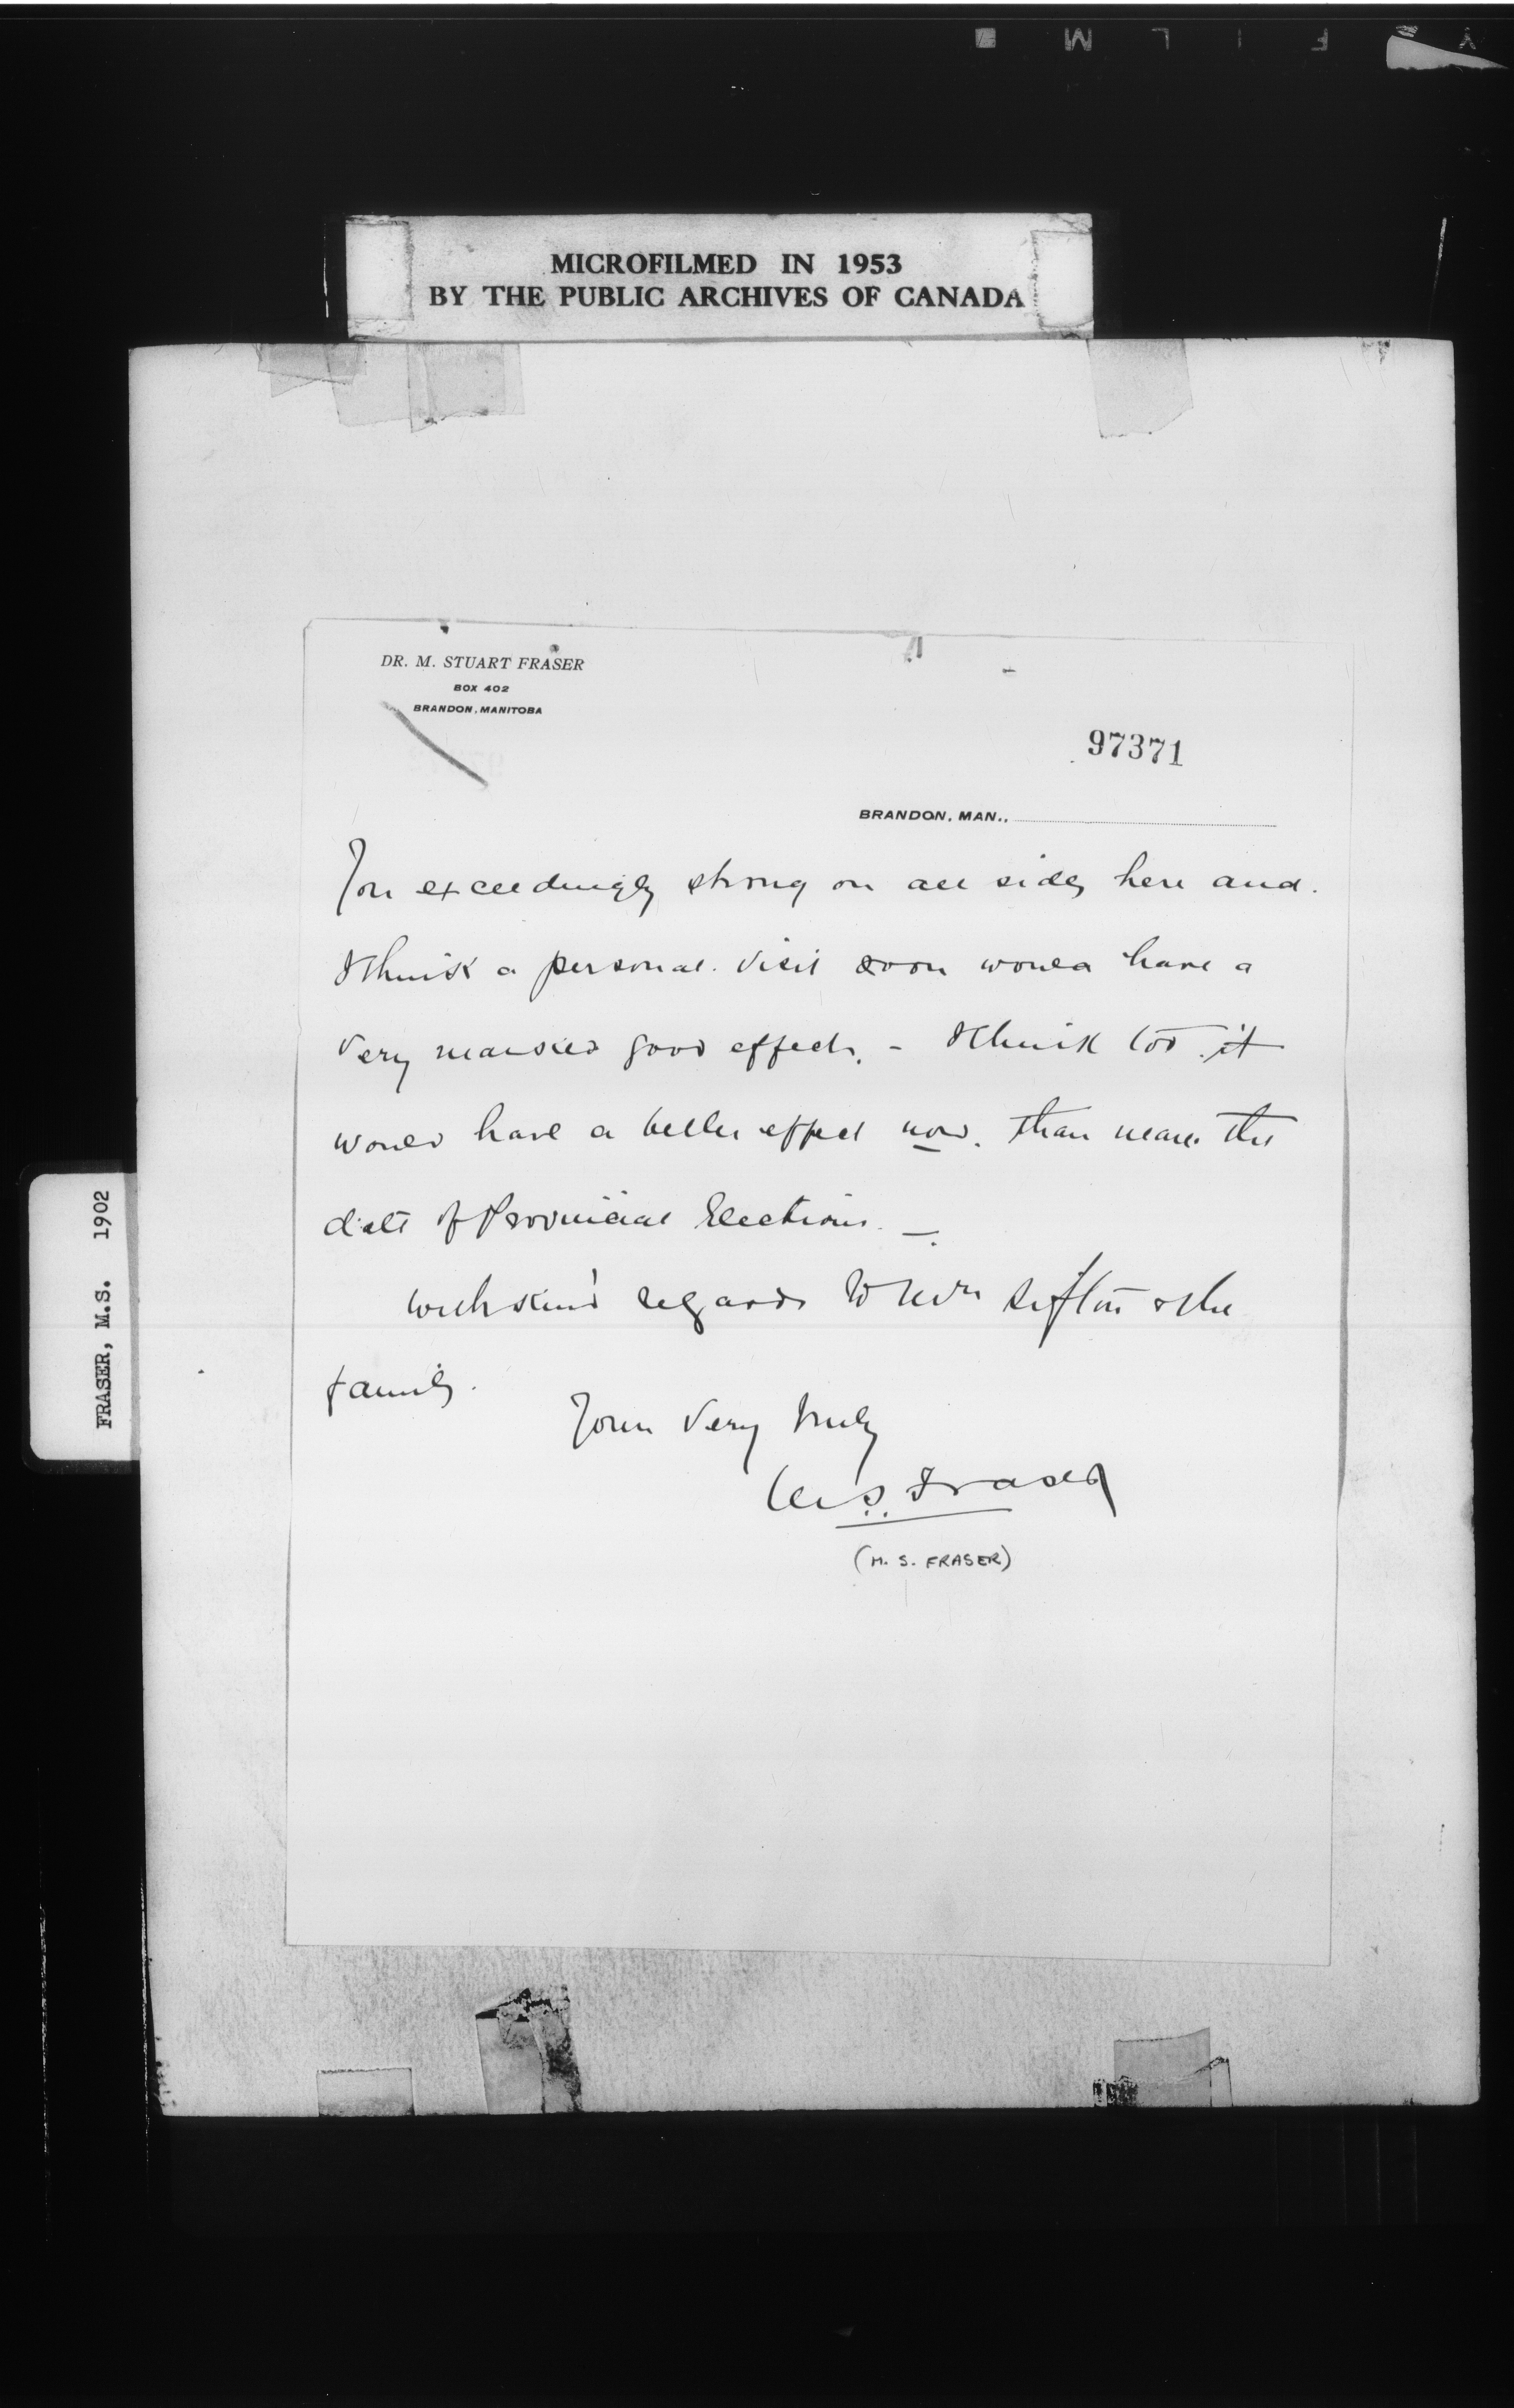 MICROFILMED IN 1953
BY THE PUBLIC ARCHIVES OF CANADA
DR. M. STUART FRASER
BOX 402
BRANDON, MANITOBA
97371
BRANDON, MAN.,
You exceedingly strong on all sides here and
I think a personal visit soon would have a
very marked good effect. - I think too it
would have a better effect now than near the
date of Provincial Elections. —
With kind regards to Mrs Sifton & the
family.
Yours Very truly
M. S. Fraser
(M. S. FRASER)
FRASER, M.S. 1902